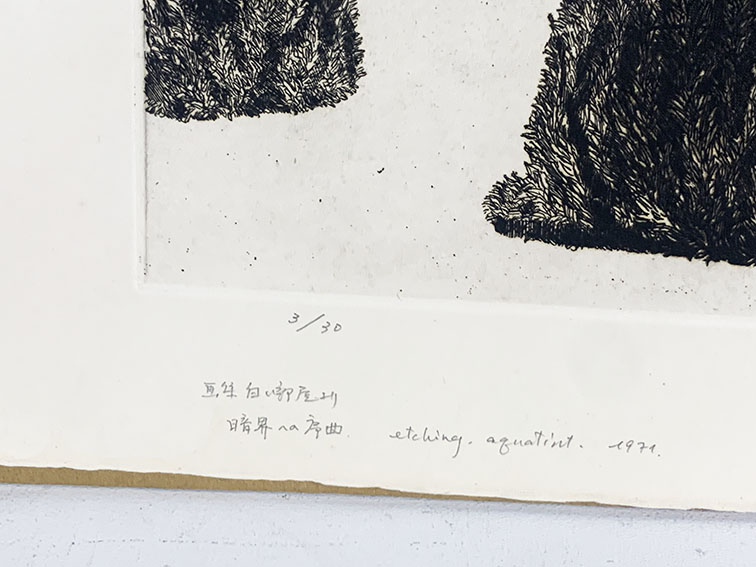 3/30
亜絲 白い部屋より
暗界への序曲 etching. aquatint. 1971.